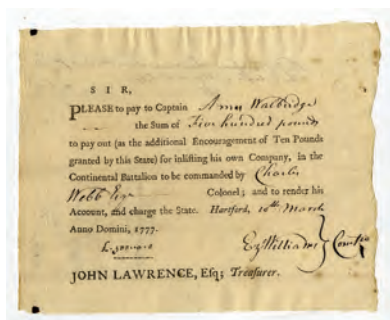 S I R,
PLEASE to pay to Captain Amos Walbridge
the Sum of Five hundred pounds
to pay out (as the additional Encouragement of Ten Pounds
granted by this State) for inlisting his own Company, in the
Continental Battalion to be commanded by Charles
Webb Esqr Colonel; and to render his
Account, and charge the State. Hartford, 10th March
Anno Domini, 1777.
£500..0..0
Ez Williams } Comtee
JOHN LAWRENCE, Esq; Treasurer.